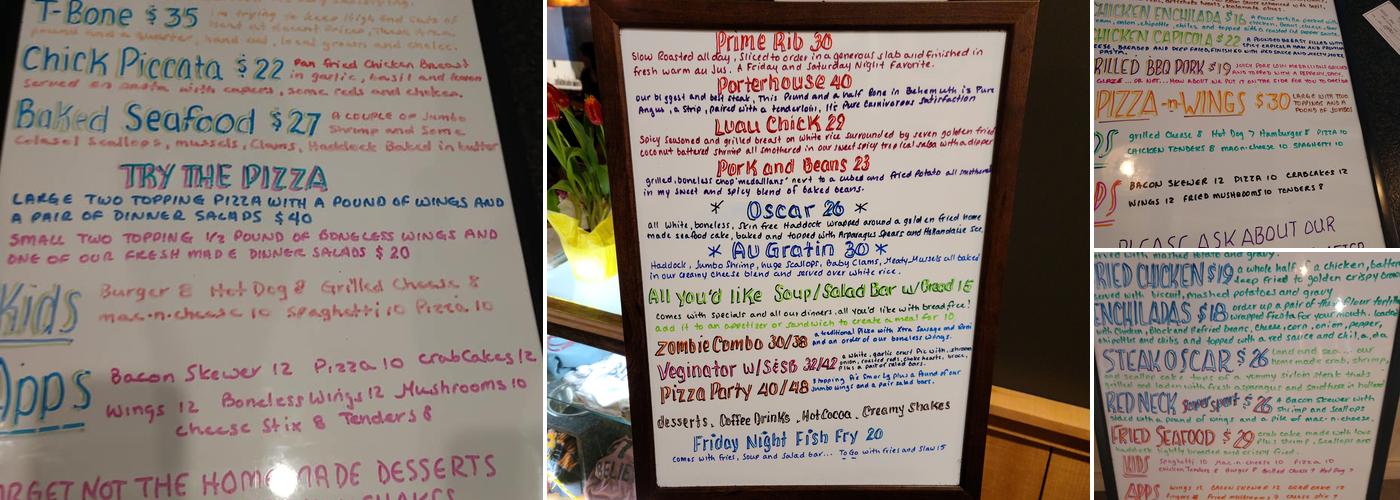 T-Bone $35
Chick Piccata $22 Pan fried Chicken Breast
in garlic, basil and lemon
Served on pasta with capers, some reds and chicken.
Baked Seafood $27 A COUPLE OF Jumbo
Shrimp and Some
Colossal Scallops, mussels, Clams, Haddock Baked in butter
TRY THE PIZZA
LARGE TWO TOPPING PIZZA WITH A POUND OF WINGS AND
A PAIR OF DINNER SALADS $40
SMALL TWO TOPPING 1/2 POUND OF BONELESS WINGS AND
ONE OF OUR FRESH MADE DINNER SALADS $20
Kids Burger 8 Hot Dog 8 Grilled Cheese 8
mac-n-cheese 10 Spaghetti 10 Pizza 10
Apps Bacon Skewer 12 Pizza 10 crabCakes 12
Wings 12 Boneless Wings 12 Mushrooms 10
cheese Stix 8 Tenders 8
RGET NOT THE HOMEMADE DESSERTS
Prime Rib 30
Slow Roasted all day, Sliced to order in a generous slab and finished in
fresh warm au Jus. A Friday and Saturday Night Favorite.
Porterhouse 40
our biggest and best steak, This Pound and a half Bone in Behemuth is Pure
Angus, a Strip, paired with a tenderloin, It's Pure Carnivorous Satisfaction
Luau Chick 22
Spicy Seasoned and grilled breast on White rice surrounded by seven golden fried
coconut battered shrimp all smothered in our sweet spicy tropical salsa with a dipper
Pork and Beans 23
grilled, boneless chop "medallians" next to a cubed and fried Potato all smothered
in my sweet and spicy blend of baked beans.
* Oscar 26 *
all White, boneless, Skin free Haddock Wrapped around a golden fried home
made seafood cake, baked and topped with Asparagus Spears and Hollandaise Sce.
* Au Gratin 30 *
Haddock, Jumbo Shrimp, huge Scallops, Baby Clams, Meaty Mussels all baked
in our creamy cheese blend and served over white rice.
All you'd like Soup/Salad Bar w/Bread 15
comes with specials and all our dinners, all you'd like with bread free!
add it to an appetizer or sandwich to create a meal for 10
Zombie Combo 30/38 a traditional Pizza with Xtra Sausage and Roni
and an order of our boneless wings.
Veginator w/S&SB 32/42 a White, garlic crust Pie with, shroom
onion, roasted reds, choke hearts, brocc,
plus a pair of salad bars.
Pizza Party 40/48 2 topping Pie Smarty plus a Pound of our
Jumbo Wings and a pair salad bars.
desserts. Coffee Drinks. Hot Cocoa. Creamy Shakes
Friday Night Fish Fry 20
comes with fries, Soup and Salad bar... To Go with fries and Slaw 15
CHICKEN ENCHILADA $16
CHICKEN CAPICOLA $22
RILLED BBQ PORK $19
PIZZA-n-WINGS $30 LARGE WITH TWO
TOPPINGS AND A
POUND OF JUMBOS
DS grilled Cheese 8 Hot Dog 7 Hamburger 8 PIZZA 10
CHICKEN TENDERS 8 mac-n-cheese 10 SPAGHETTI 10
PS BACON SKEWER 12 PIZZA 10 CRABCAKES 12
WINGS 12 FRIED MUSHROOMS 10 TENDERS 8
PLEASE ASK ABOUT OUR
RIED CHICKEN $19 a whole half of a chicken, batter
deep fried to golden crispy brown
served with biscuit, mashed potatoes and gravy
NCHILADAS $18 order up a pair of the flour tortilla
wrapped fiesta for your mouth. loaded
with chicken, Black and refried beans, cheese, corn, onion, pepper,
chipotle and chilis and topped with a red sauce and
STEAK OSCAR $26 land and sea... our
homemade crab, shrimp,
and scallop cake tops of a yummy sirloin steak that's
grilled and laden with fresh asparagus and
REDNECK $26 A Bacon Skewer with
Shrimp and Scallops
Sided with a pound of wings and a pile of mac-n-cheese.
FRIED SEAFOOD $29 crab cake made with love
plus shrimp, Scallops and
haddock lightly breaded and crispy fried.
KIDS Spaghetti 10 Mac-n-cheese 10 Pizza 10
Chicken Tenders 8 Burger 8 Grilled Cheese 7 Hot Dog 7
APPS Wings 12 BACON SKEWER 12 CRAB CAKE 12